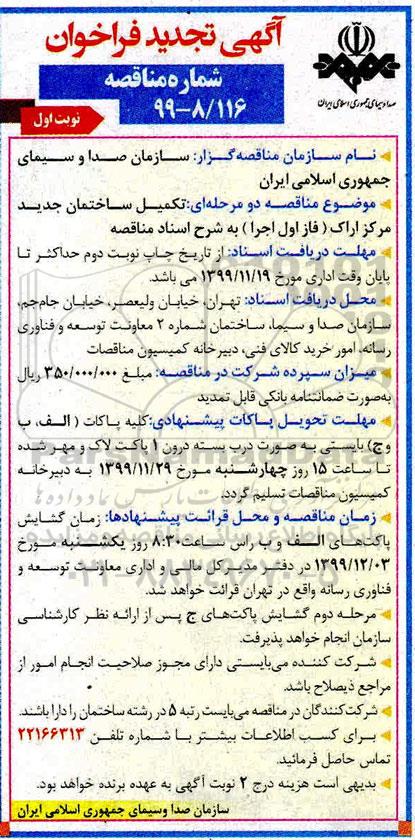 آگهی تجدید فراخوان
صدا و سیمای جمهوری اسلامی ایران
شماره مناقصه
۹۹-۸/۱۱۶
نوبت اول
نام سازمان مناقصه‌گزار: سازمان صدا و سیمای
جمهوری اسلامی ایران
موضوع مناقصه دو مرحله‌ای: تکمیل ساختمان جدید
مرکز اراک ( فاز اول اجرا ) به شرح اسناد مناقصه
مهلت دریافت اسناد: از تاریخ چاپ نوبت دوم حداکثر تا
پایان وقت اداری مورخ ۱۳۹۹/۱۱/۱۹ می باشد.
محل دریافت اسناد: تهران، خیابان ولیعصر، خیابان جام‌جم،
سازمان صدا و سیما، ساختمان شماره ۲ معاونت توسعه و فناوری
رسانه، امور خرید کالای فنی، دبیرخانه کمیسیون مناقصات
میزان سپرده شرکت در مناقصه: مبلغ ۳۵۰/۰۰۰/۰۰۰ ریال
به‌صورت ضمانتنامه بانکی قابل تمدید
مهلت تحویل پاکات پیشنهادی: کلیه پاکات ( الف، ب
و ج) بایستی به صورت درب بسته درون ۱ پاکت لاک و مهر شده
تا ساعت ۱۵ روز چهارشنبه مورخ ۱۳۹۹/۱۱/۲۹ به دبیرخانه
کمیسیون مناقصات تسلیم گردد.
زمان مناقصه و محل قرائت پیشنهادها: زمان گشایش
پاکت‌های الف و ب راس ساعت ۸:۳۰ روز یکشنبه مورخ
۱۳۹۹/۱۲/۰۳ در دفتر مدیرکل مالی و اداری معاونت توسعه و
فناوری رسانه واقع در تهران قرائت خواهد شد.
مرحله دوم گشایش پاکت‌های ج پس از ارائه نظر کارشناسی
سازمان انجام خواهد پذیرفت.
شرکت کننده می‌بایستی دارای مجوز صلاحیت انجام امور از
مراجع ذیصلاح باشد.
شرکت‌کنندگان در مناقصه می‌بایست رتبه ۵ در رشته ساختمان را دارا باشند.
برای کسب اطلاعات بیشتر با شماره تلفن ۲۲۱۶۶۳۱۳
تماس حاصل فرمائید.
بدیهی است هزینه درج ۲ نوبت آگهی به عهده برنده خواهد بود.
سازمان صدا وسیمای جمهوری اسلامی ایران